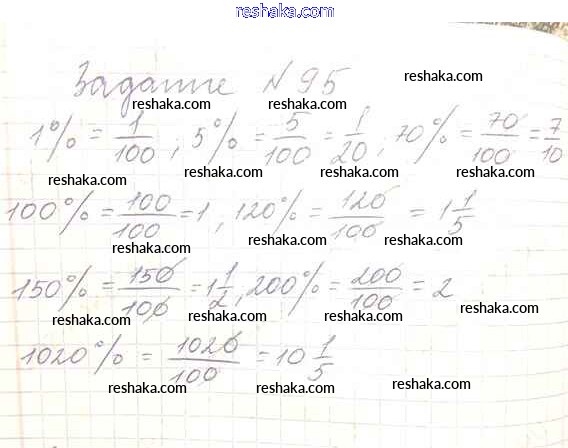 reshaka.com
Задание N95
reshaka.com
reshaka.com reshaka.com
1% = 1/100 ; 5% = 5/100 = 1/20 , 70% = 70/100 = 7/10
reshaka.com reshaka.com reshaka.com
100% = 100/100 = 1 , 120% = 120/100 = 1 1/5
reshaka.com reshaka.com reshaka.com
150% = 150/100 = 1 1/2 , 200% = 200/100 = 2
reshaka.com reshaka.com reshaka.com
1020% = 1020/100 = 10 1/5
reshaka.com reshaka.com reshaka.com